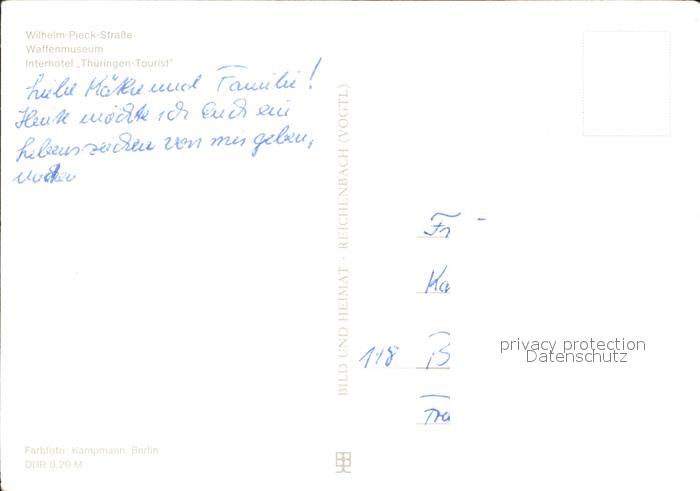 Wilhelm-Pieck-Straße
Waffenmuseum
Interhotel „Thüringen-Tourist"
Liebe Käthe und Familie!
Heute möchte ich Euch ein
Lebenszeichen von mir geben,
BILD UND HEIMAT · REICHENBACH (VOGTL)
Fr
Ka
118 B
Tra
privacy protection
Datenschutz
Farbfoto: Kampmann, Berlin
DDR 0,20 M